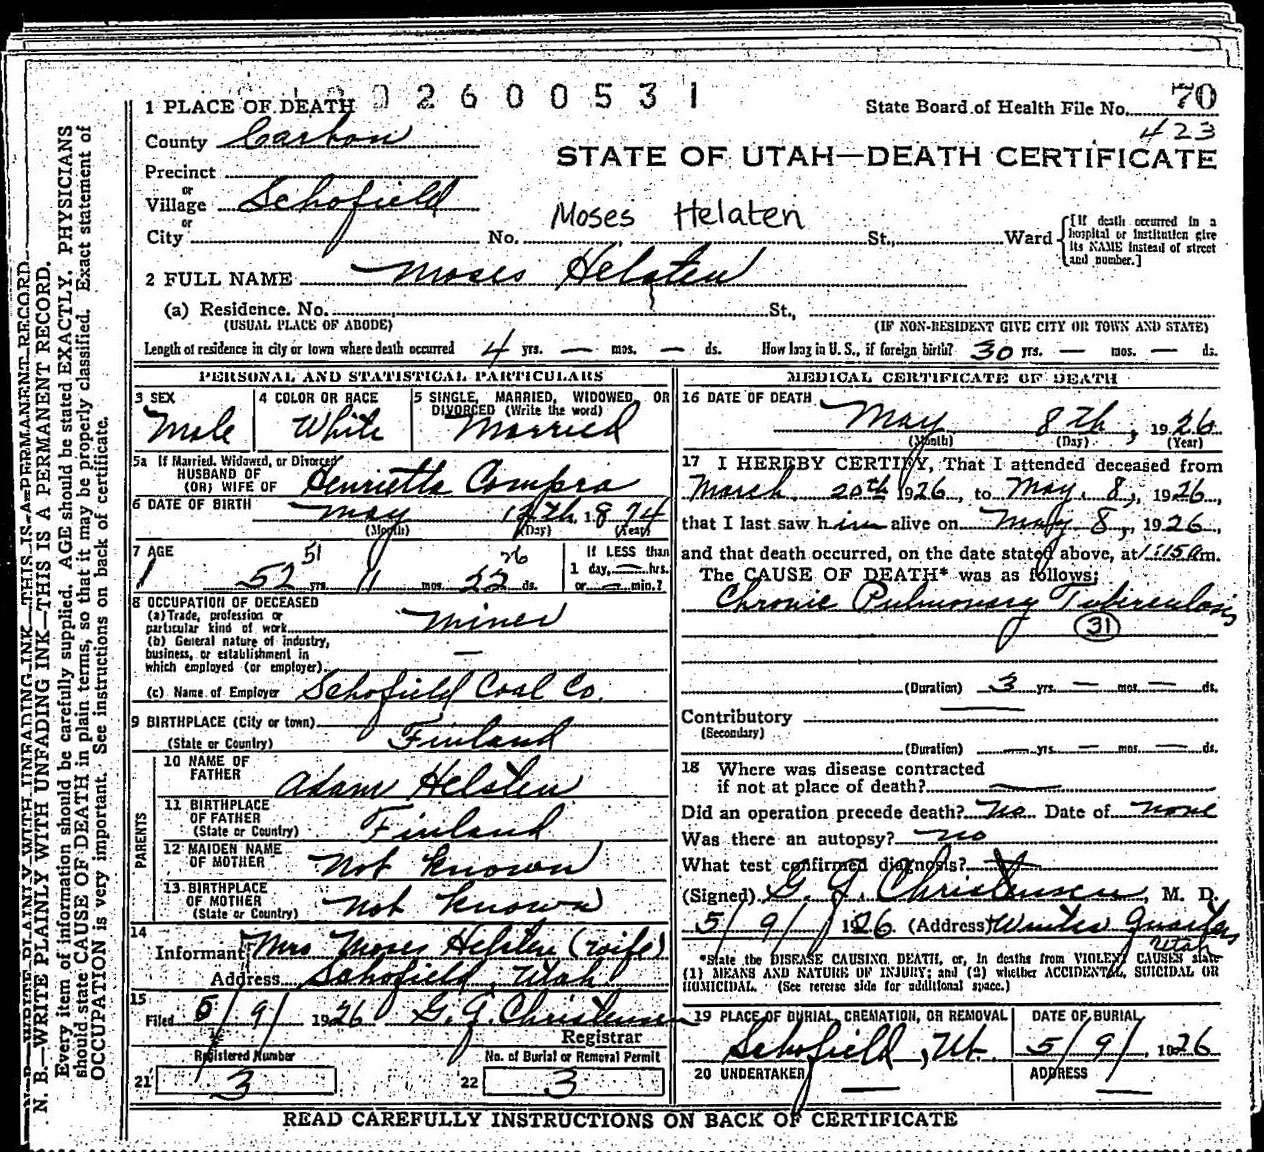 1 PLACE OF DEATH 0 2 6 0 0 5 3 1 State Board of Health File No. 70
County Carbon 423
STATE OF UTAH—DEATH CERTIFICATE
Precinct
or
Village Schofield
or
Moses Helaten
City No. St., Ward [If death occurred in a hospital or institution give its NAME instead of street and number.]
2 FULL NAME Moses Helsten
(a) Residence. No. St.,
(USUAL PLACE OF ABODE) (IF NON-RESIDENT GIVE CITY OR TOWN AND STATE)
Length of residence in city or town where death occurred 4 yrs. — mos. — ds. How long in U. S., if foreign birth? 30 yrs. — mos. — ds.
PERSONAL AND STATISTICAL PARTICULARS
3 SEX Male
4 COLOR OR RACE White
5 SINGLE, MARRIED, WIDOWED, OR
DIVORCED (Write the word)
Married
5a If Married, Widowed, or Divorced
HUSBAND OF
(OR) WIFE OF Henrietta Compra
6 DATE OF BIRTH May 12th, 1874
(Month) (Day) (Year)
7 AGE 51 26
52 yrs. 11 mos. 22 ds.
If LESS than
1 day, — hrs.
or — min.?
8 OCCUPATION OF DECEASED
(a) Trade, profession or
particular kind of work Miner
(b) General nature of industry,
business, or establishment in
which employed (or employer) —
(c) Name of Employer Schofield Coal Co.
9 BIRTHPLACE (City or town)
(State or Country) Finland
PARENTS
10 NAME OF
FATHER Adam Helsten
11 BIRTHPLACE
OF FATHER
(State or Country) Finland
12 MAIDEN NAME
OF MOTHER Not Known
13 BIRTHPLACE
OF MOTHER
(State or Country) Not Known
14
Informant Mrs Moses Helsten (wife)
Address Schofield, Utah
15
Filed 5/9/ 1926 G. J. Christensen
Registrar
Registered Number No. of Burial or Removal Permit
21 3 22 3
MEDICAL CERTIFICATE OF DEATH
16 DATE OF DEATH
May 8th, 1926
(Month) (Day) (Year)
17 I HEREBY CERTIFY, That I attended deceased from
March 20th 1926, to May 8, 1926,
that I last saw him alive on May 8, 1926,
and that death occurred, on the date stated above, at 1:15 a m.
The CAUSE OF DEATH* was as follows:
Chronic Pulmonary Tuberculosis
31
(Duration) 3 yrs. — mos. — ds.
Contributory
(Secondary)
(Duration) — yrs. — mos. — ds.
18 Where was disease contracted
if not at place of death? —
Did an operation precede death? No Date of None
Was there an autopsy? No
What test confirmed diagnosis?
(Signed) G. J. Christensen, M. D.
5/9/ 1926 (Address) Winter Quarters
Utah
*State the DISEASE CAUSING DEATH, or, in deaths from VIOLENT CAUSES state
(1) MEANS AND NATURE OF INJURY; and (2) whether ACCIDENTAL, SUICIDAL OR
HOMICIDAL. (See reverse side for additional space.)
19 PLACE OF BURIAL, CREMATION, OR REMOVAL
Schofield, Ut.
DATE OF BURIAL
5/9/, 1926
20 UNDERTAKER —
ADDRESS —
READ CAREFULLY INSTRUCTIONS ON BACK OF CERTIFICATE
N. B.—WRITE PLAINLY WITH UNFADING INK—THIS IS A PERMANENT RECORD
N. B.—WRITE PLAINLY WITH UNFADING INK—THIS IS A PERMANENT RECORD.
Every item of information should be carefully supplied. AGE should be stated EXACTLY. PHYSICIANS
should state CAUSE OF DEATH in plain terms, so that it may be properly classified. Exact statement of
OCCUPATION is very important. See instructions on back of certificate.